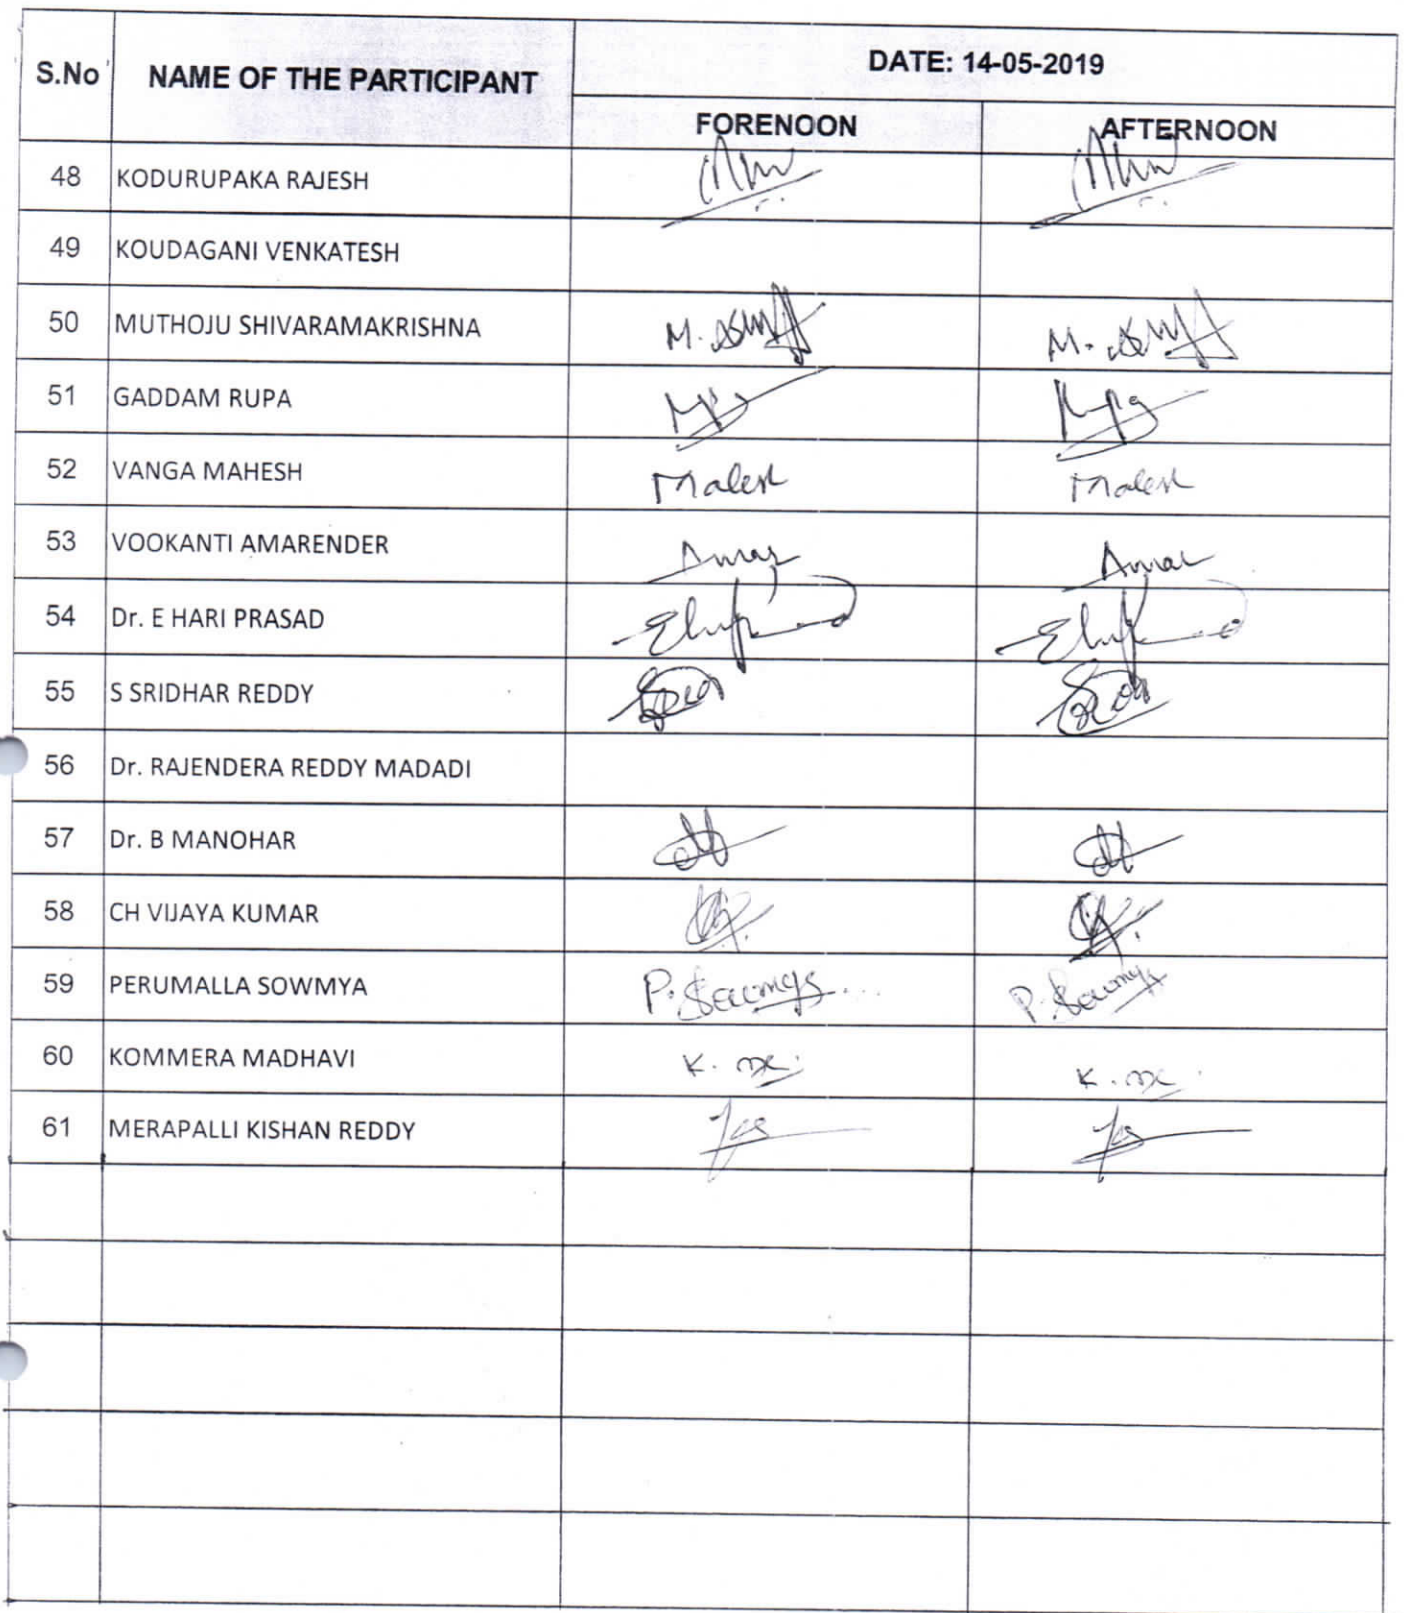 S.No NAME OF THE PARTICIPANT DATE: 14-05-2019
FORENOON AFTERNOON
48 KODURUPAKA RAJESH
49 KOUDAGANI VENKATESH
50 MUTHOJU SHIVARAMAKRISHNA M. M.
51 GADDAM RUPA
52 VANGA MAHESH Mahesh Mahesh
53 VOOKANTI AMARENDER Amar Amar
54 Dr. E HARI PRASAD
55 S SRIDHAR REDDY
56 Dr. RAJENDERA REDDY MADADI
57 Dr. B MANOHAR
58 CH VIJAYA KUMAR
59 PERUMALLA SOWMYA P. Sowmya P. Sowmya
60 KOMMERA MADHAVI K. K.
61 MERAPALLI KISHAN REDDY